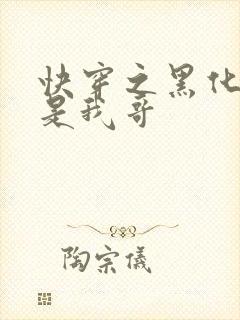 快穿之黑化
是我哥
陶宗儀